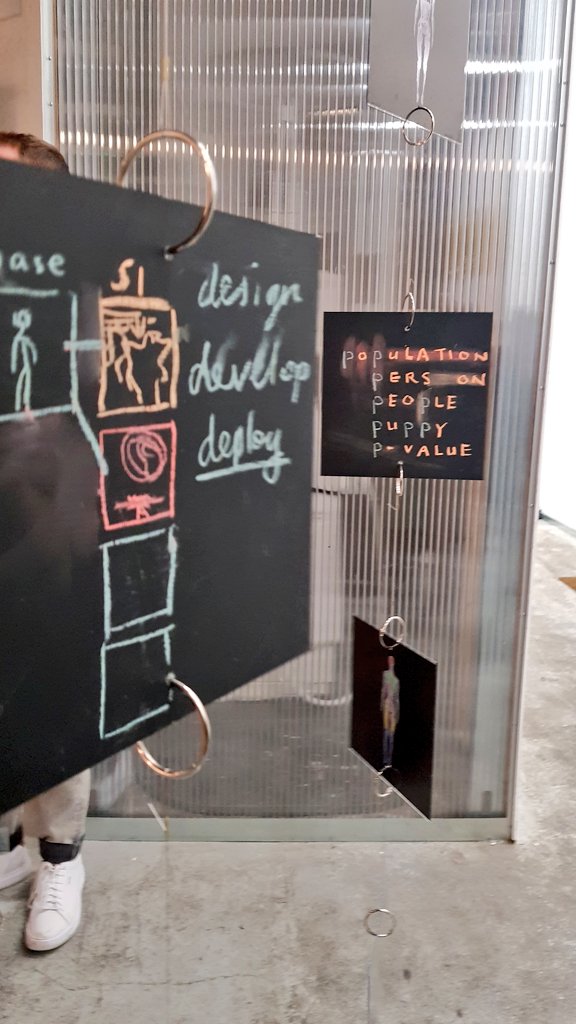 S1
design
develop
deploy
pOpULATION
pERSON
pEOpLE
pUppY
p-VALUE